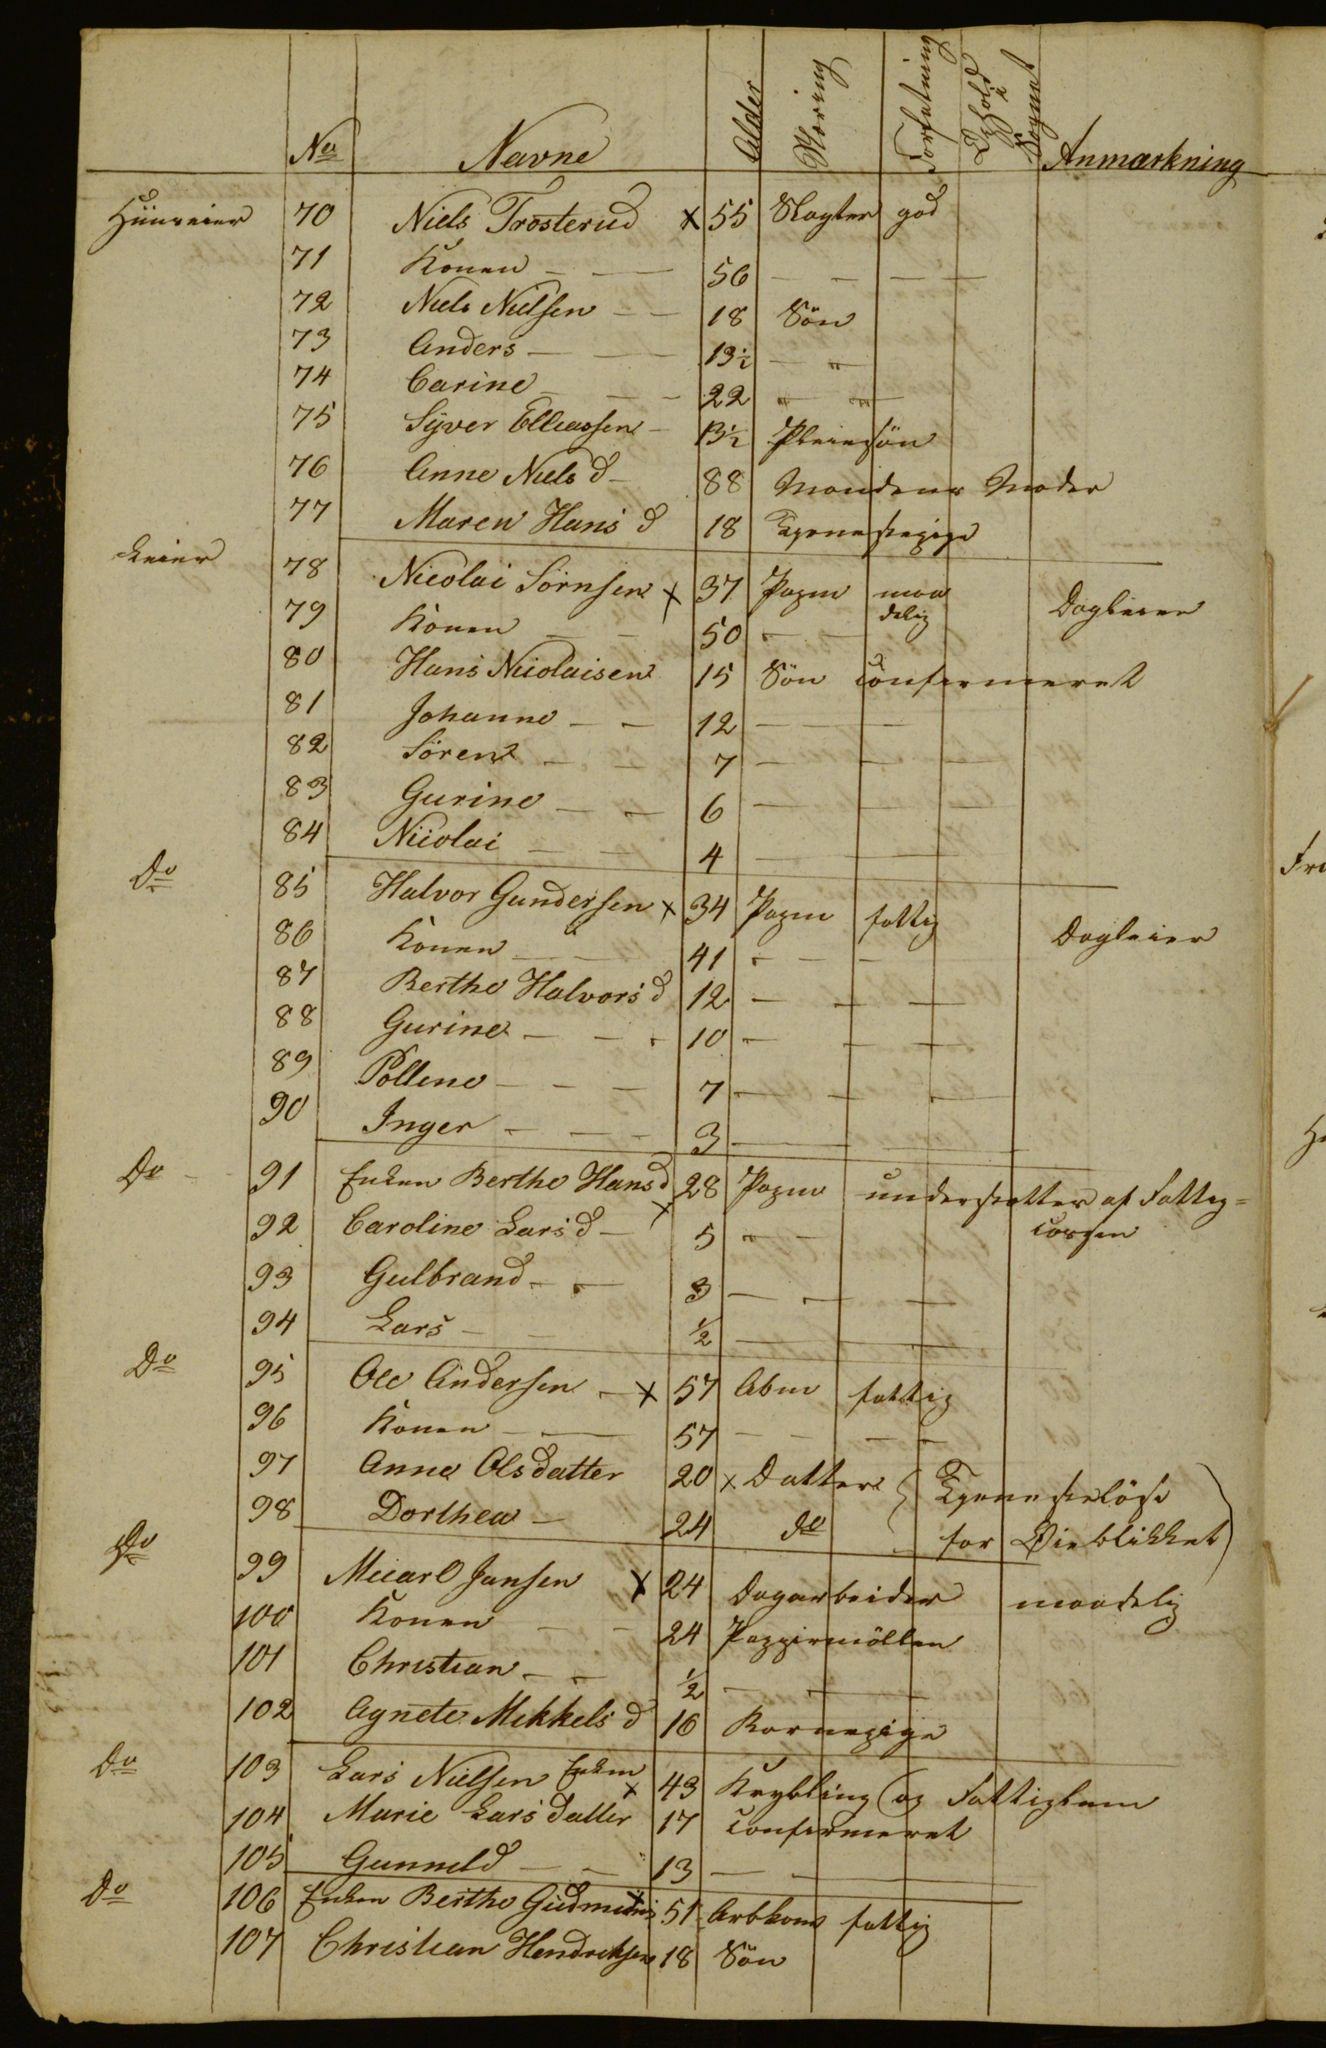 No Navne Alder Næring Forfatning Ophold i Sognet Anmærkning
Huuseier 70 Niels Trosterud x 55 Slagter god
71 Konen — — 56 — — — —
72 Niels Nielsen — — 18 Sön
73 Anders — — 13½ — "
74 Carine — — 22 " "
75 Syver Elliassen — 13½ Pleiesön
76 Anne Niels d — 88 Mandens Moder
77 Maren Hans d 18 Tjenestepige
Leier 78 Nicolai Sörnsen x 37 Papm maa
delig Dagleier
79 Konen — — 50 — —
80 Hans Nicolaisen 15 Sön confirmeret
81 Johanne — — 12 — —
82 Sören — — 7 — — —
83 Gurine — — 6 — — —
84 Nicolai — — 4 — —
Do 85 Halvor Gundersen x 34 Papm fattig Dagleier
86 Konen — — 41 — — —
87 Berthe Halvors d 12 — — —
88 Gurine — — 10 — — —
89 Pollene — — — 7 — — —
90 Inger — — — 3 —
Do 91 Enken Berthe Hans d x 28 Papm understøttes af Fattig=
cassen
92 Caroline Lars d — 5 — —
93 Gulbrand — — 3 — — —
94 Lars — — ½ — —
Do 95 Ole Andersen — x 57 Abm fattig
96 Konen — — 57 — — — —
97 Anne Olsdatter 20 x Datter { Tjenesteløse
98 Dorthea — 24 do for Øieblikket
Do 99 Micael Jansen x 24 Dagarbeider maadelig
100 Konen — — 24 Pappirmöllen
101 Christian — — ½ — —
102 Agnete Mikkels d 16 Barnepige
Do 103 Lars Nielsen Enken x 43 Krybling og Fattiglem
104 Marie Larsdatter 17 confirmeret
105 Gunneld — — 13 — —
Do 106 Enken Berthe Gudmunds x 51 Arbkone fattig
107 Christian Hendriksen 18 Sön